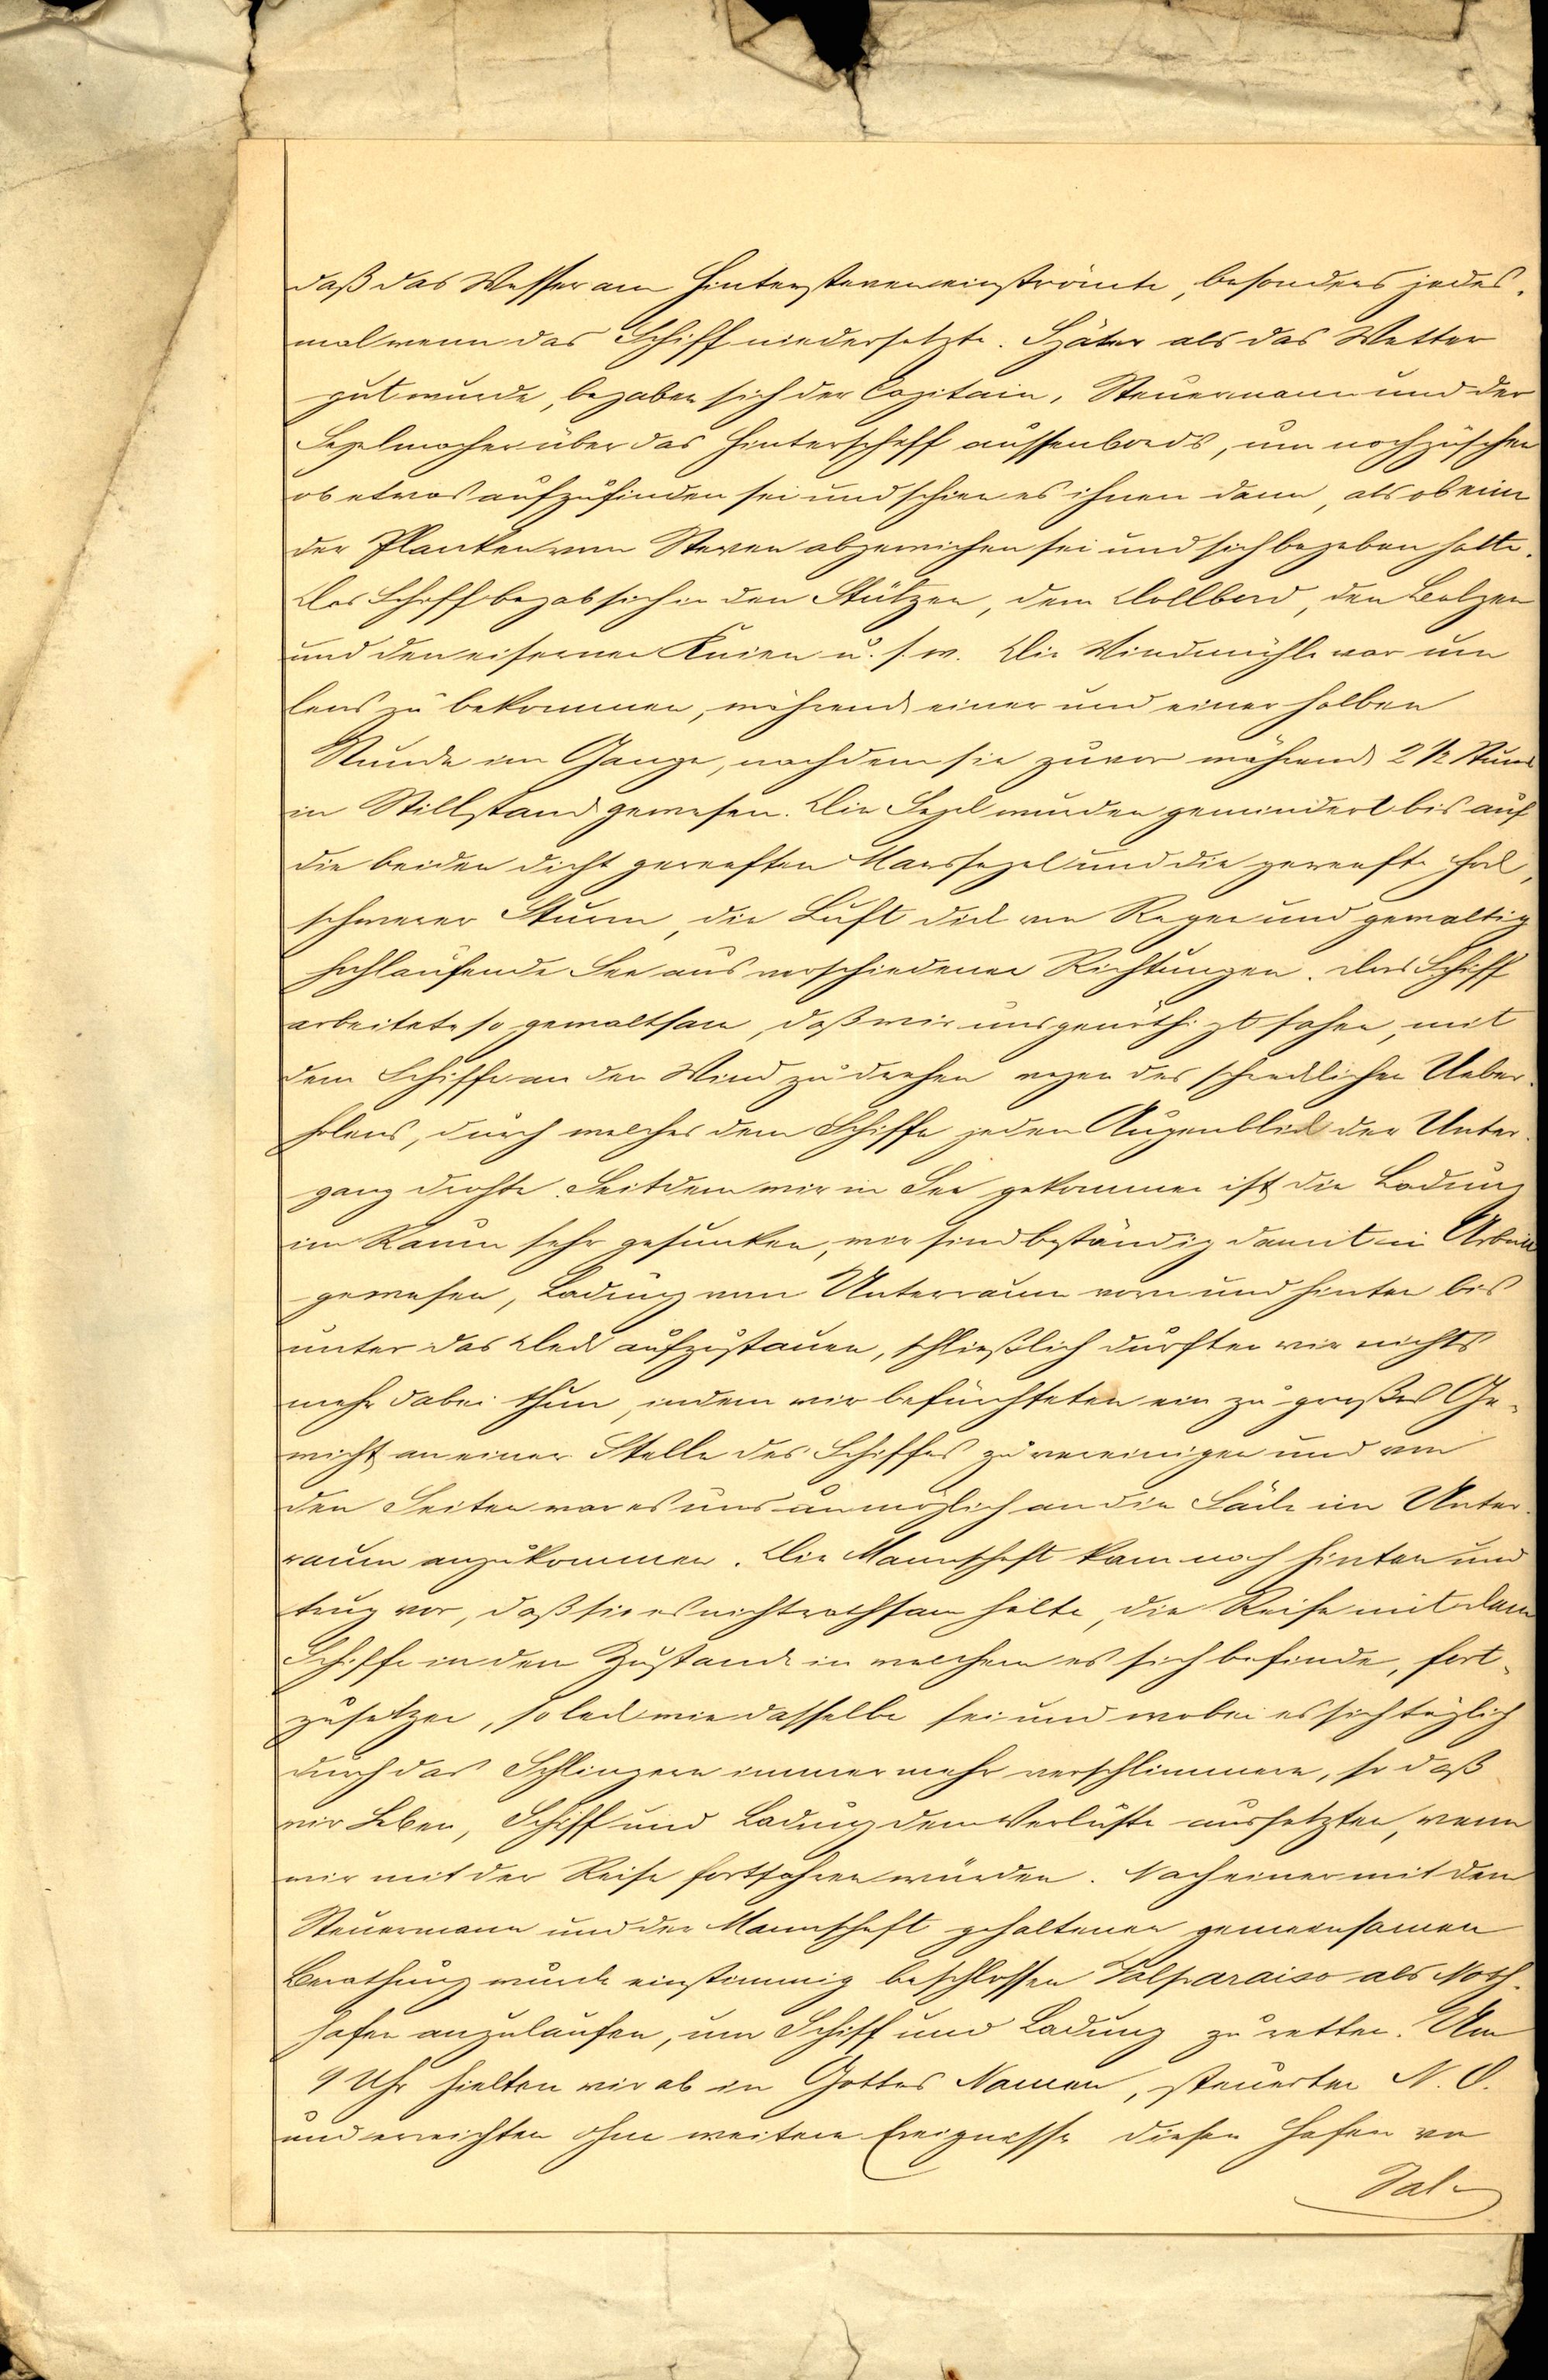 daß das Wasser am Hintersteven einströmte, besonders jedes-
mal wenn das Schiff niedersetzte. Später als das Wetter
gut wurde, begaben sich der Capitain, Steuermann und der
Segelmacher über das Hinterschiff aussenbords, um nachzusehen
ob etwas aufzufinden sei und schien es ihnen dann, als ob eine
der Planken vom Steven abgewichen sei und sich begeben hatte.
Das Schiff begab sich in den Stützen, dem Dollbord, den Bolzen
und den eisernen Knien u. s. w. Die Windmühle war um
lens zu bekommen, während einer und einer halben
Stunde im Gange, nachdem sie zuvor während 2 ½ Stund
in Stillstand gewesen. Die Segel wurden gemindert bis auf
die beiden dicht gereeften Marssegel und die gereefte Fock,
schwerer Sturm, die Luft dick von Regen und gewaltig
hochlaufende See aus verschiedenen Richtungen. Das Schiff
arbeitete so gewaltsam, daß wir uns genöthigt sahen, mit
dem Schiffe an den Wind zu drehen wegen des schrecklichen Ueber-
holens, durch welches dem Schiffe jeden Augenblick der Unter-
gang drohte. Seitdem wir in See gekommen ist die Ladung
im Raum sehr gesunken, wir sind beständig damit in Arbeit
gewesen, Ladung vom Unterraum vorn und hinten bis
unter das Deck aufzustauen, schließlich durften wir nichts
mehr dabei thun, indem wir befürchteten ein zu großes Ge-
wicht an einer Stelle des Schiffes zu vereinigen und von
den Seiten war es uns unmöglich an die Säcke im Unter-
raum anzukommen. Die Mannschaft kam nach hinten und
trug vor, daß sie es nicht rathsam halte, die Reise mit dem
Schiffe in dem Zustande in welchem es sich befinde, fort-
zusetzen, so leck wie dasselbe sei und wobei es sich täglich
durch das Schlingern immer mehr verschlimmere, so daß
wir Leben, Schiff und Ladung dem Verluste aussetzten, wenn
wir mit der Reise fortfahren würden. Nach einer mit dem
Steuermann und der Mannschaft gehaltenen gemeinsamen
Berathung wurde einstimmig beschlossen Valparaiso als Noth-
hafen anzulaufen, um Schiff und Ladung zu retten. Um
9 Uhr hielten wir ab in Gottes Namen, steuerten N. O.
und erreichten ohne weitere Ereignisse diesen Hafen von
Val-